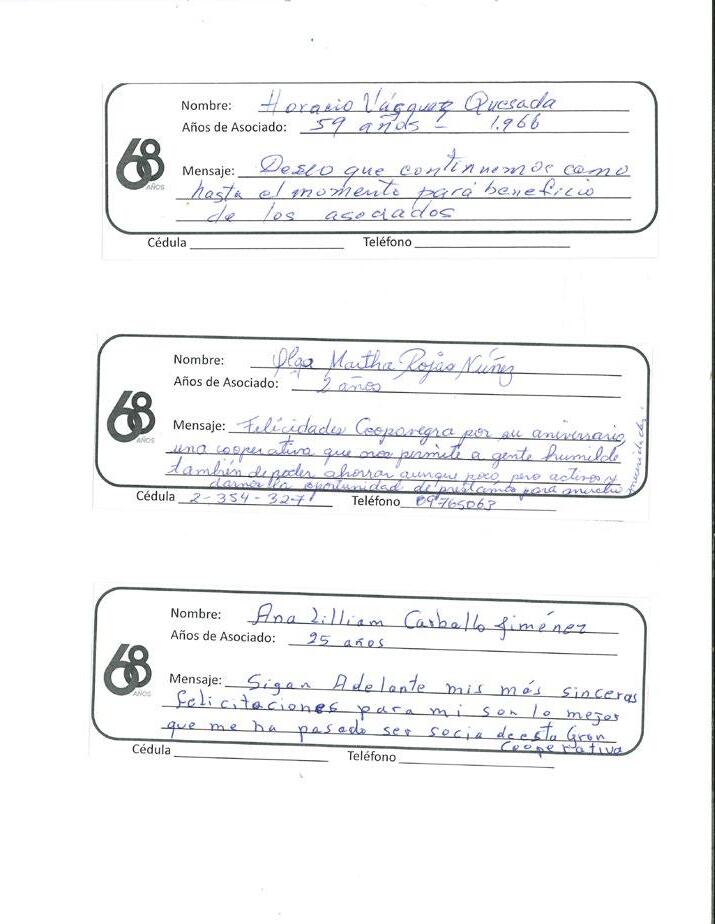 Nombre: Horacio Vásquez Quesada
Años de Asociado: 59 años - 1.966
68 AÑOS
Mensaje: Deseo que continuemos como
hasta el momento para beneficio
de los asociados
Cédula Teléfono
Nombre: Olga Martha Rojas Núñez
Años de Asociado: 2 años
68 AÑOS
Mensaje: Felicidades Coopavegra por su aniversario,
una cooperativa que nos permite a gente humilde
también de poder ahorrar aunque poco, pero activos y
darnos la oportunidad de préstamos para nuestra
Cédula 2-354-327 Teléfono 89765063
Nombre: Ana Lilliam Carballo Jiménez
Años de Asociado: 25 años
68 AÑOS
Mensaje: Sigan Adelante mis más sinceras
felicitaciones para mi son lo mejor
que me ha pasado ser socia de esta Gran
Cooperativa
Cédula Teléfono